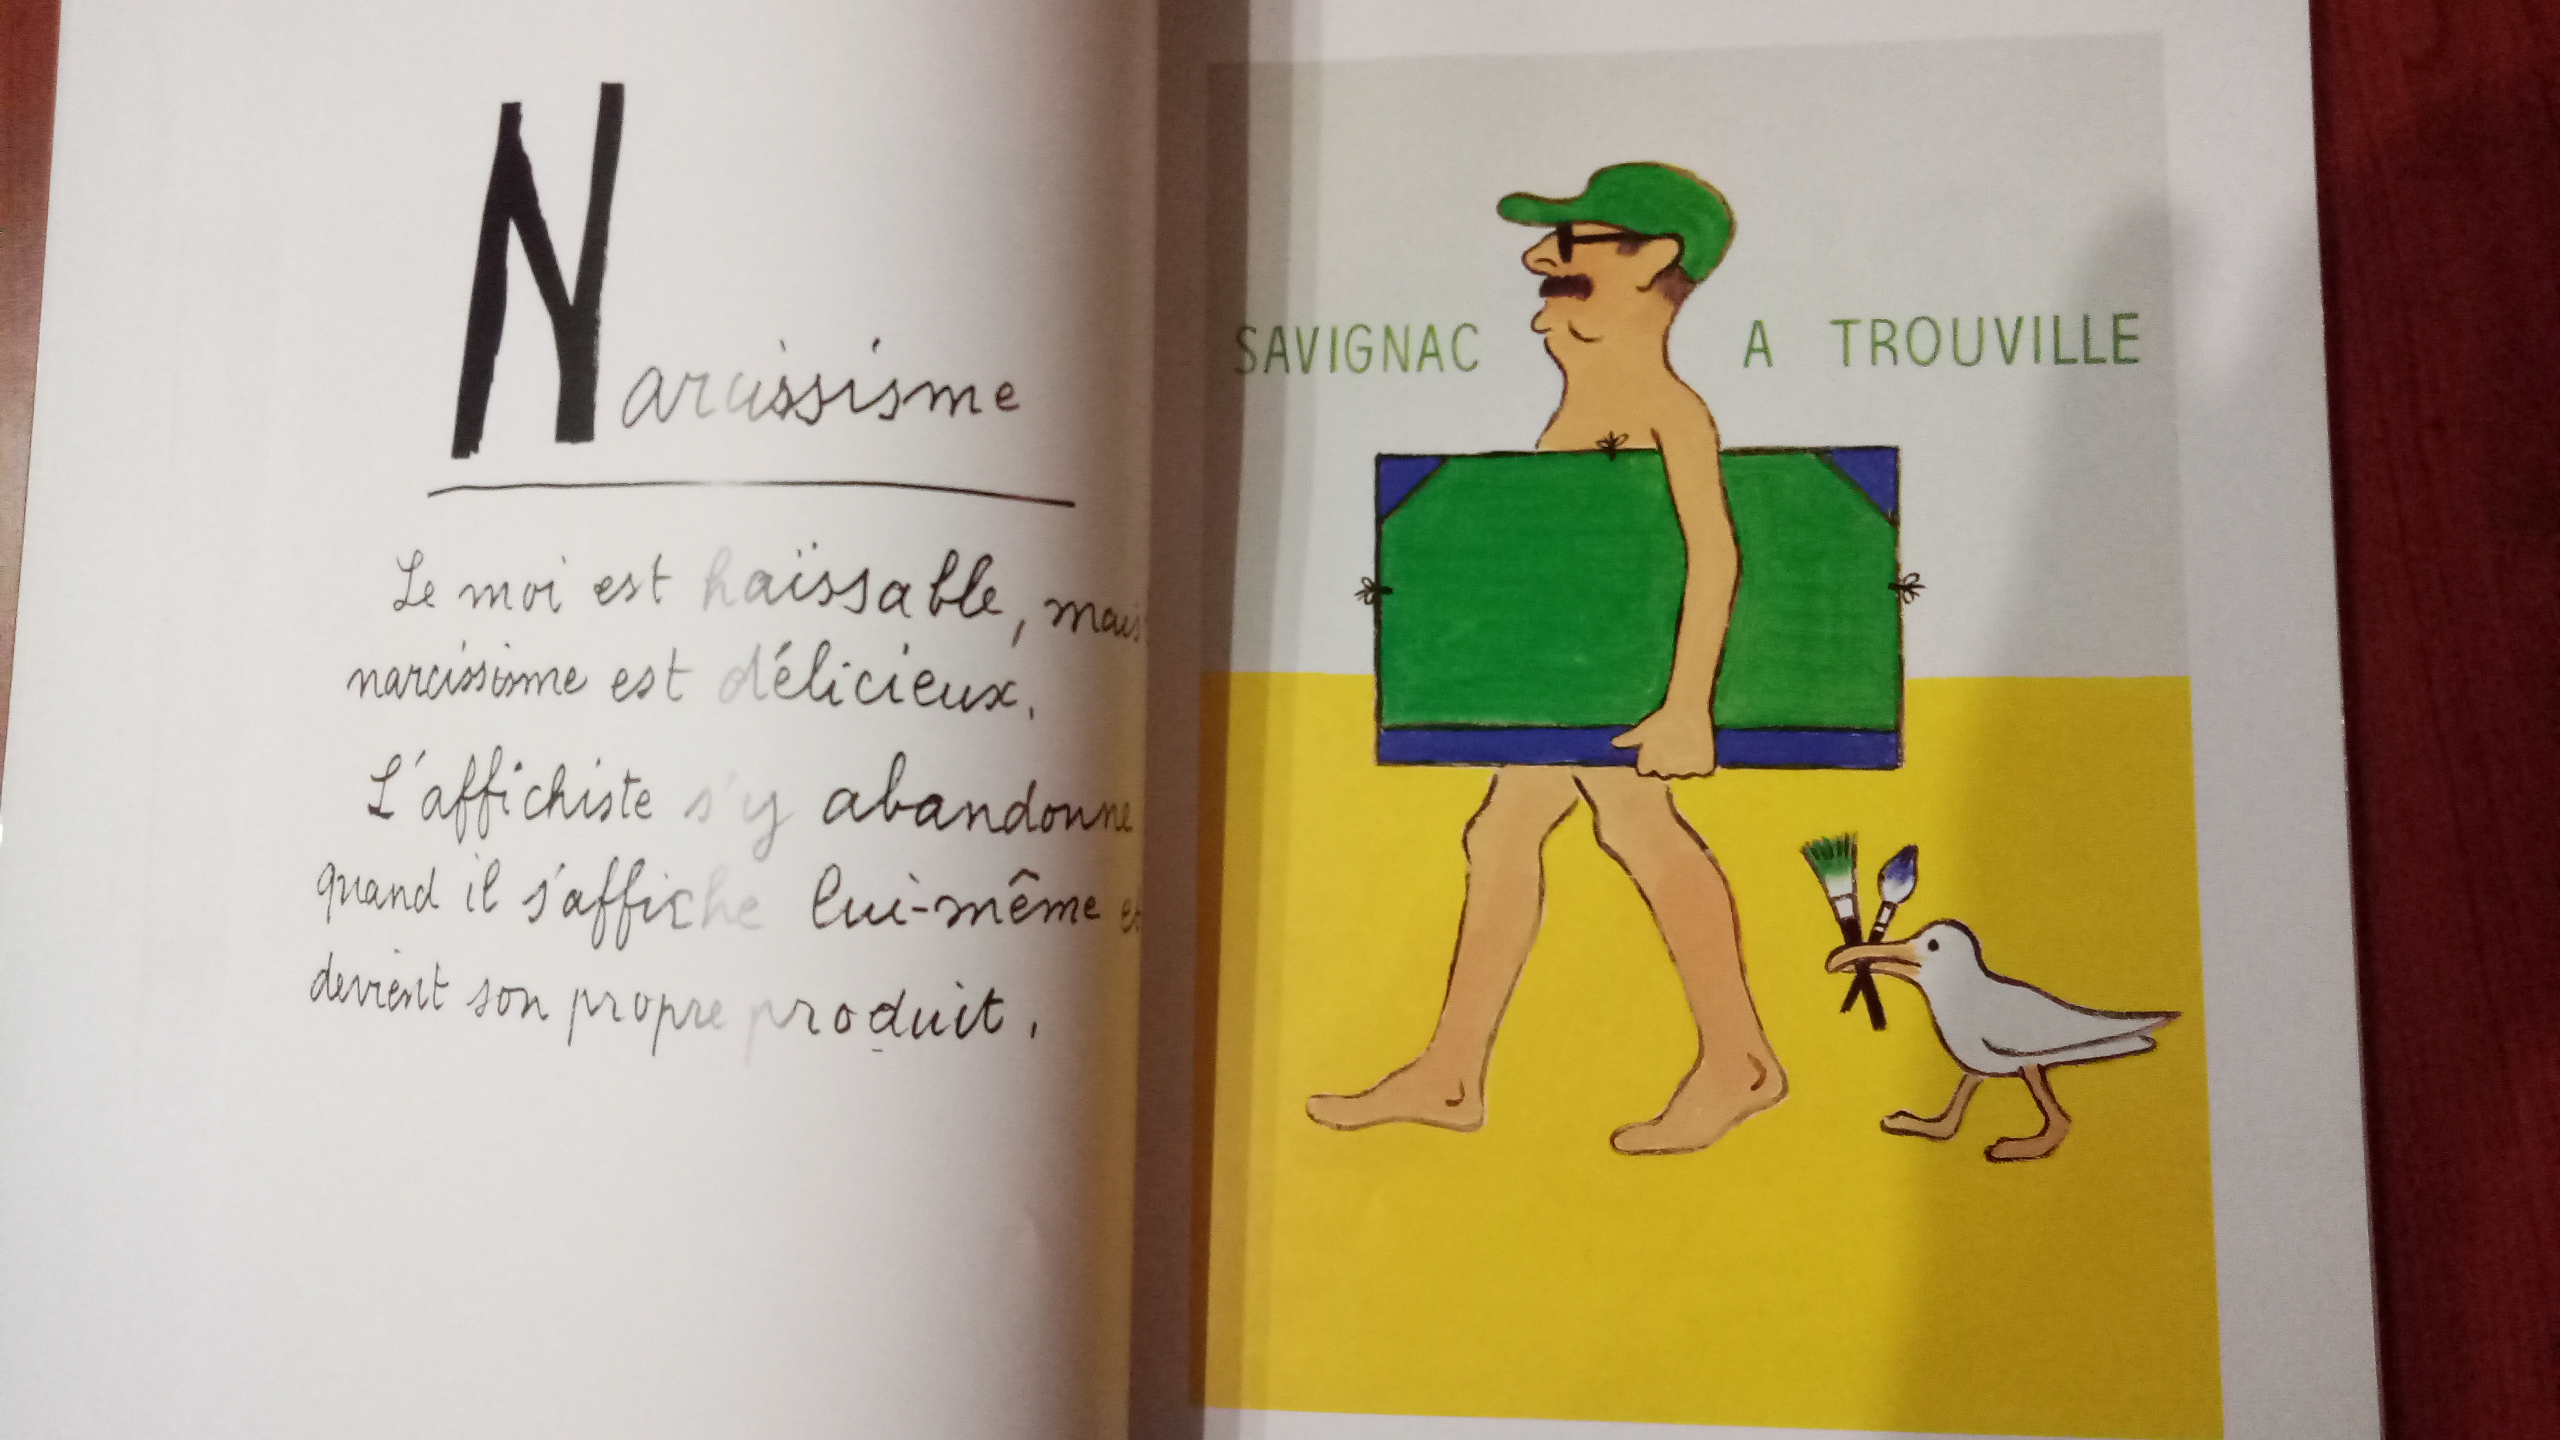 Narcissisme
Le moi est haïssable, mais
narcissisme est délicieux.
L'affichiste s'y abandonne
quand il s'affiche lui-même et
devient son propre produit.
SAVIGNAC A TROUVILLE